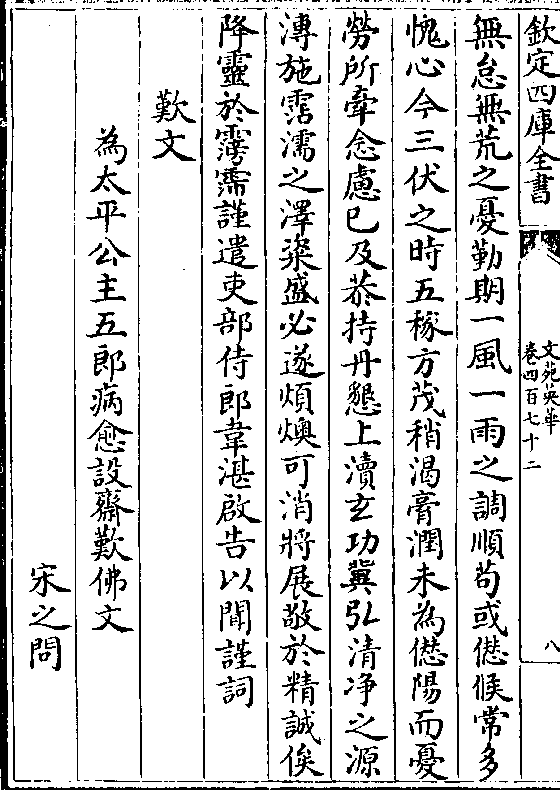 欽定四庫全書
文苑英華
卷四百七十二
八
無怠無荒之憂勤期一風一雨之調順苟或愆候常多
愧心今三伏之時五稼方茂稍渴膏潤未為愆陽而憂
勞所牽念慮已及恭持丹懇上瀆玄功冀弘清净之源
溥施霑濡之澤粢盛必遂煩燠可消將展敬於精誠俟
降靈於霶霈謹遣吏部侍郎韋湛啟告以聞謹詞
歎文
為太平公主五郎病愈設齋歎佛文
宋之問